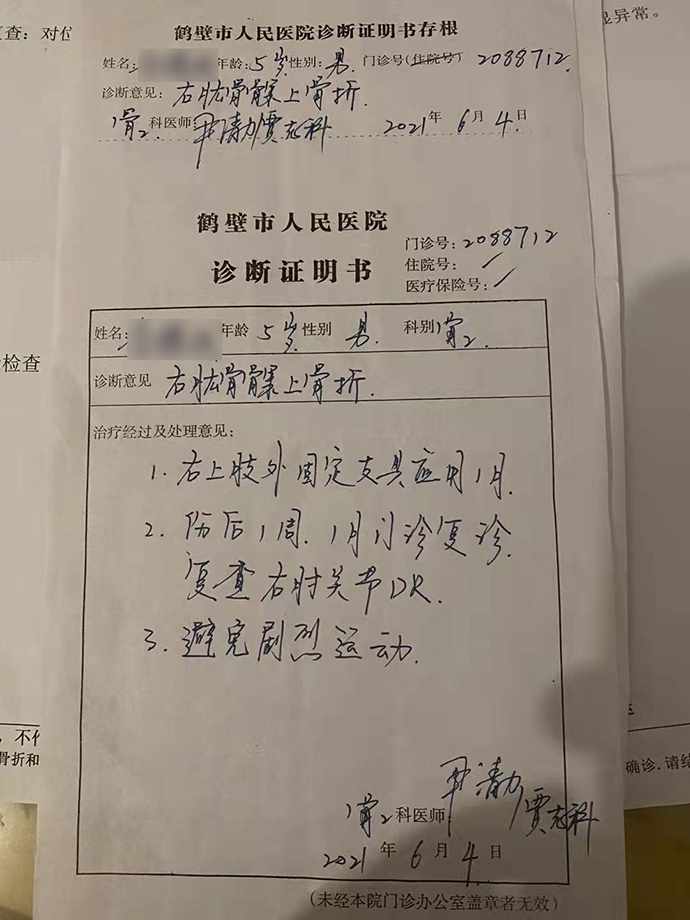 查：对位
显异常。
鹤壁市人民医院诊断证明书存根
姓名： 年龄：5岁 性别：男 门诊号(住院号) 2088712
诊断意见：右肱骨髁上骨折.
骨2 科医师 贾志科 2021年6月4日
鹤壁市人民医院
诊断证明书
门诊号：2088712
住院号：
医疗保险号：
姓名： 年龄 5岁 性别 男 科别 骨2
检查
诊断意见 右肱骨髁上骨折.
治疗经过及处理意见：
1. 右上肢外固定支具应用1月.
2. 伤后1周.1月门诊复诊.
复查右肘关节DR.
3. 避免剧烈运动.
，不作
骨折和
确诊.请结
骨2 科医师 贾志科
2021年6月4日
(未经本院门诊办公室盖章者无效)